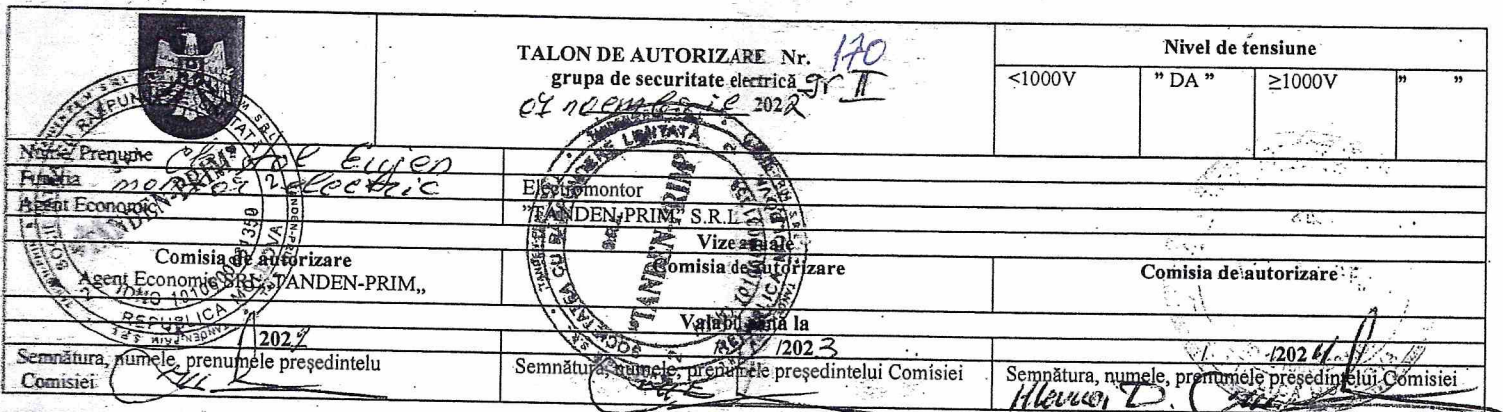 TALON DE AUTORIZARE Nr. 170
grupa de securitate electrică gr II
07 noembrie 2022
Nivel de tensiune
<1000V " DA " ≥1000V " "
Nume, Prenume Eujen
Funcția montor electric Electromontor
Agent Economic "TANDEN-PRIM" S.R.L
Vize anuale
Comisia de autorizare
Agent Economic SRL „TANDEN-PRIM„
Comisia de autorizare
Comisia de autorizare
Valabil până la
202
/2023
/ /202
Semnătura, numele, prenumele președintelu
Comisiei
Semnătura, numele, prenumele președintelui Comisiei
Semnătura, numele, prenumele președintelui Comisiei
SOCIETATEA CU RĂSPUNDERE LIMITATĂ
"TANDEN-PRIM"
REPUBLICA MOLDOVA